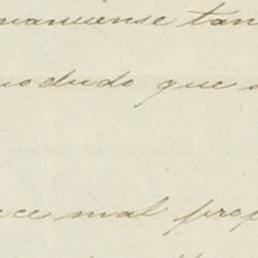 manuense tan
no dudo que
ece mal prop